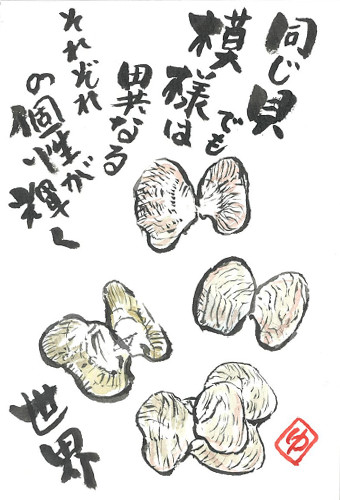 同じ貝
でも
模様は
異なる
それぞれ
の個性が
輝く
世界
ゆ